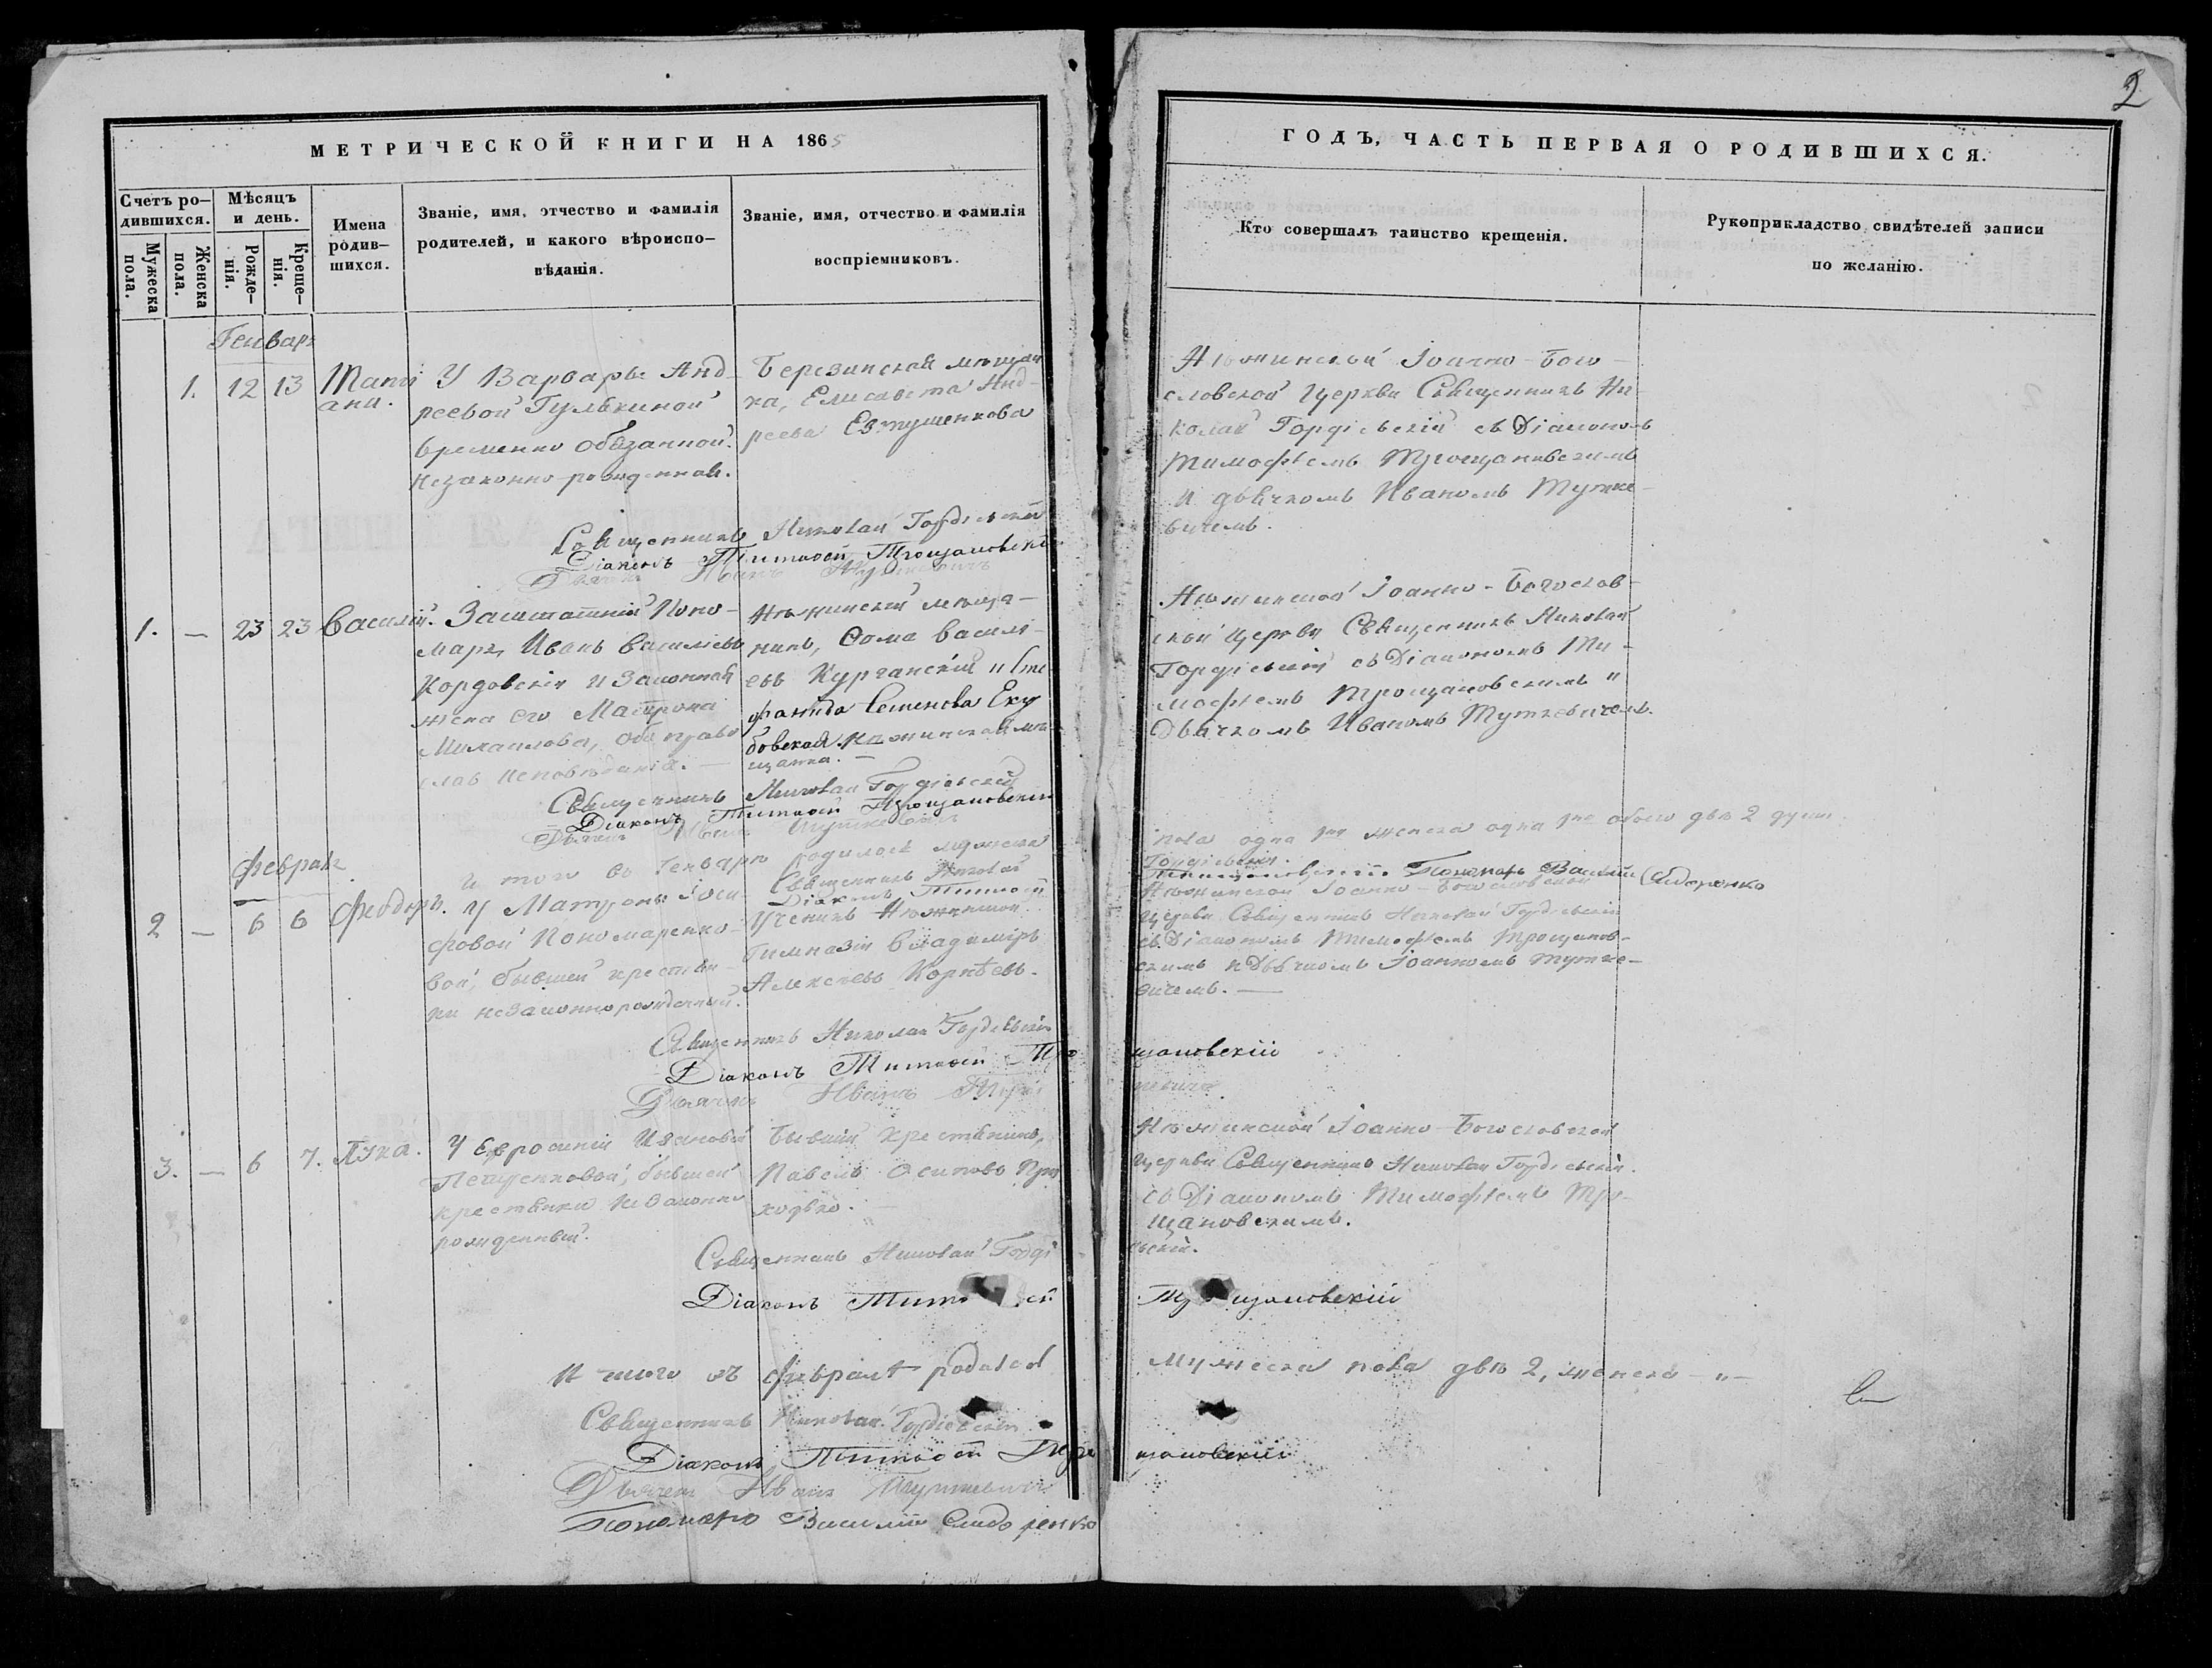 2
МЕТРИЧЕСКОЙ КНИГИ НА 1865
ГОДЪ, ЧАСТЬ ПЕРВАЯ О РОДИВШИХСЯ.
Счетъ ро-
дившихся.
Мужеска
пола.
Женска
пола.
Мѣсяцъ
и день.
Рожде-
нія.
Креще-
нія.
Имена
родив-
шихся.
Званіе, имя, отчество и фамилія
родителей, и какого вѣроиспо-
вѣданія.
Званіе, имя, отчество и фамилія
воспріемниковъ.
Кто совершалъ таинство крещенія.
Рукоприкладство свидѣтелей записи
по желанію.
Генварь
1. 12 13
Тати
ана.
У Варвары Анд-
реевой Гулькиной
временно обязанной.
незаконно рожденная.
Березинская мѣщан
ка, Елисавета Анд-
реева Евтушенкова
Нѣжинской Іоанно-Бого-
словской Церкви Священникъ Ни-
колай Гордіевскій съ Діакономъ
Тимофѣемъ Трощановскимъ
и дьячкомъ Иваномъ Тутке-
вичемъ.
Священникъ Николай Гордіевскій
Діаконъ Тимофей Трощановскій
Дьячекъ Иванъ
1. — 23 23 Василій.
Заштатный Поно-
марь Иванъ Васильевъ
Кордовскій и Законная
жена его Матрона
Михаилова, оба право
слав исповѣданія. —
Нѣжинскій мѣща-
нинъ, Ѳома Василі-
евъ Курганскій и Сте
фанида Семенова Яку
бовская Нѣжинская мѣ-
щанка. —
Нѣжинской Іоанно-Богослов-
ской Церкви Священникъ Николай
Гордіевскій съ Діакономъ Ти-
мофѣемъ Трощановскимъ и
Дьячкомъ Иваномъ Туткевичемъ.
Священникъ Николай Гордіевскій
Діаконъ Тимофей Трощановскій
Дьячекъ Иванъ Туткевичъ
И того въ Генварѣ родилось мужеска
пола одна женска одна обоего двѣ 2 души
Священникъ Николай
Гордіевскій.
Діаконъ Тимофей
Трощановскій Пономарь Василій Сидоренко
Февраль
2 — 6 6 Феодоръ.
У Матроны Іоси-
фовой Пономаренко-
вой, бывшей крестьян-
ки незаконнорожденный.
Ученикъ Нѣжинской
Гимназіи Владимиръ
Алексѣевъ Корнѣевъ.
Нѣжинской Іоанно-Богословской
Церкви Священникъ Николай Гордіевскій
съ Діакономъ Тимофѣемъ Трощанов-
скимъ и Дьячкомъ Іоанномъ Тутке-
вичемъ. —
Священникъ Николай Гордіевскій
Діаконъ Тимофей Тро щановскій
Дьячекъ Иванъ
3. — 6 7. Лука.
У Евфросиніи Ивановой
Лещенковой, бывшей
крестьянки незаконно
рожденный.
Бывшій крестьянинъ,
Павелъ Осиповъ При
ходько. —
Нѣжинской Іоанно-Богословской
Церкви Священникъ Николай Гордіевскій.
съ Діакономъ Тимофѣемъ Тро-
щановскимъ.
Священникъ Николай Гордіевскій.
Діаконъ Тимо ей Тр щановскій
И того въ Февралѣ родилось мужеска пола двѣ 2, женска — " —
Священникъ Николай Гордіевскій
Діаконъ Тимофей Тро щановскій
Дьячекъ Иванъ Туткевичъ
Пономарь Василій Сидоренко